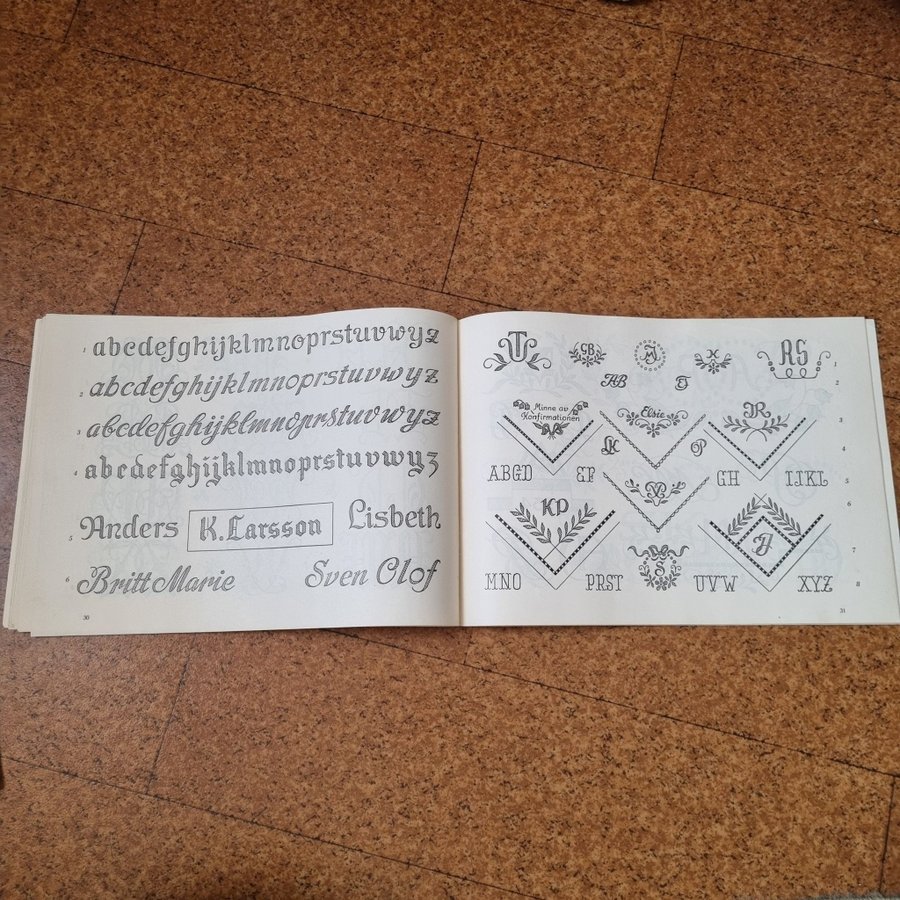 1 abcdefghijklmnoprstuvwyz
2 abcdefghijklmnoprstuvwyz
3 abcdefghijklmnoprstuvwyz
4 abcdefghijklmnoprstuvwyz
5 Anders K.Larsson Lisbeth
6 Britt Marie Sven Olof
30
GB RS 1
AB 2
Minne av
Konfirmationen
Elsie JR 3
P 4
ABGD EF GH IJKL 5
KP 6
S 7
MNO PRST UVW XYZ 8
31